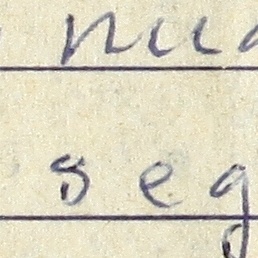 nua
seg